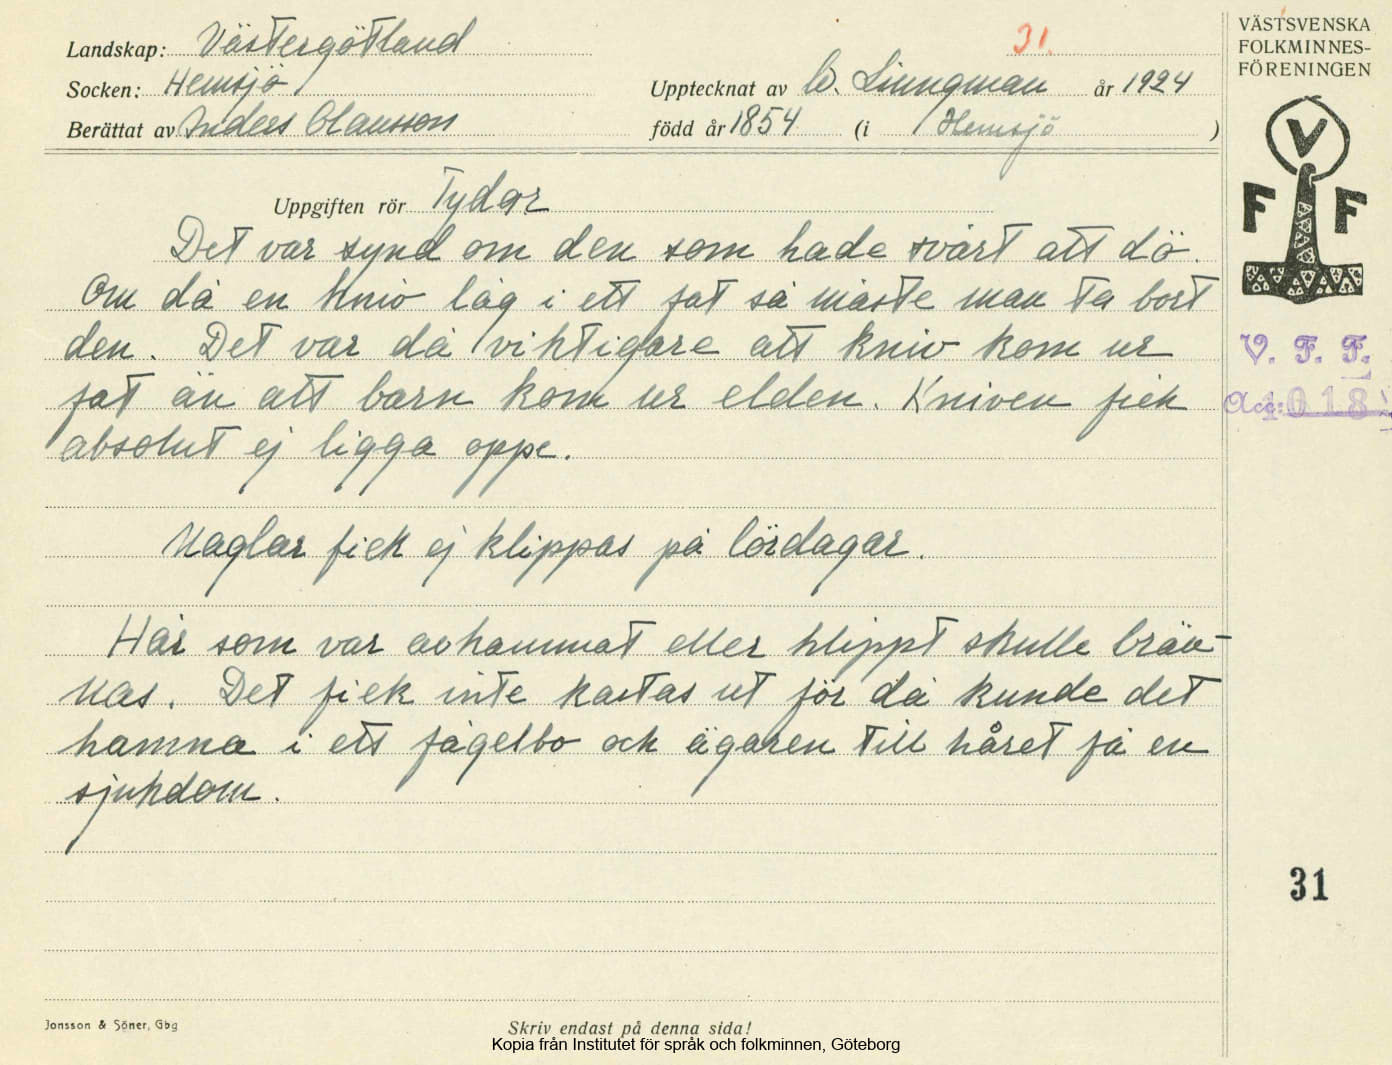 Landskap: Västergötland
31.
Socken: Hemsjö
Upptecknat av W. Liungman år 1924
Berättat av Anders Olausson
född år 1854 (i Hemsjö)
Uppgiften rör Tydor
Det var synd om den som hade svårt att dö.
Om då en kniv låg i ett fat så måste man ta bort
den. Det var då viktigare att kniv kom ur
fat än att barn kom ur elden. Kniven fick
absolut ej ligga oppe.
Naglar fick ej klippas på lördagar.
Hår som var avkammat eller klippt skulle brän-
nas. Det fick inte kastas ut för då kunde det
hamna i ett fågelbo och ägaren till håret få en
sjukdom.
Jonsson & Söner, Gbg
Skriv endast på denna sida!
Kopia från Institutet för språk och folkminnen, Göteborg
VÄSTSVENSKA
FOLKMINNES-
FÖRENINGEN
V
F F
V. F. F.
Acc: 1018
31